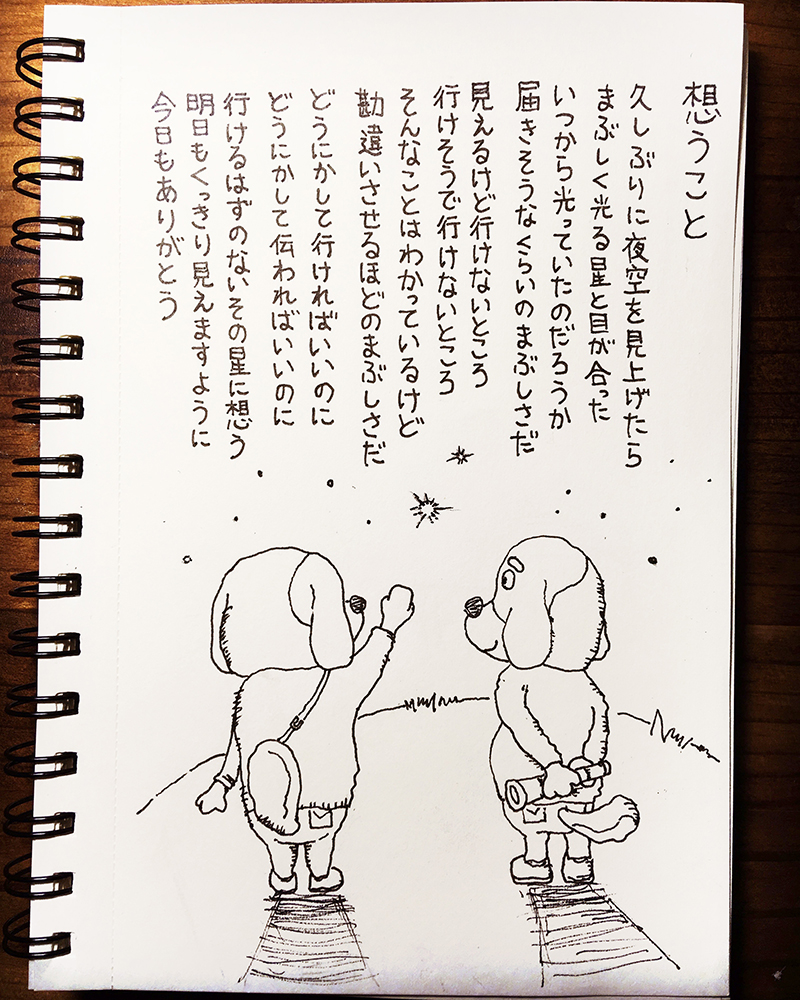 想うこと
久しぶりに夜空を見上げたら
まぶしく光る星と目が合った
いつから光っていたのだろうか
届きそうなくらいのまぶしさだ
見えるけど行けないところ
行けそうで行けないところ
そんなことはわかっているけど
勘違いさせるほどのまぶしさだ
どうにかして行ければいいのに
どうにかして伝わればいいのに
行けるはずのないその星に想う
明日もくっきり見えますように
今日もありがとう